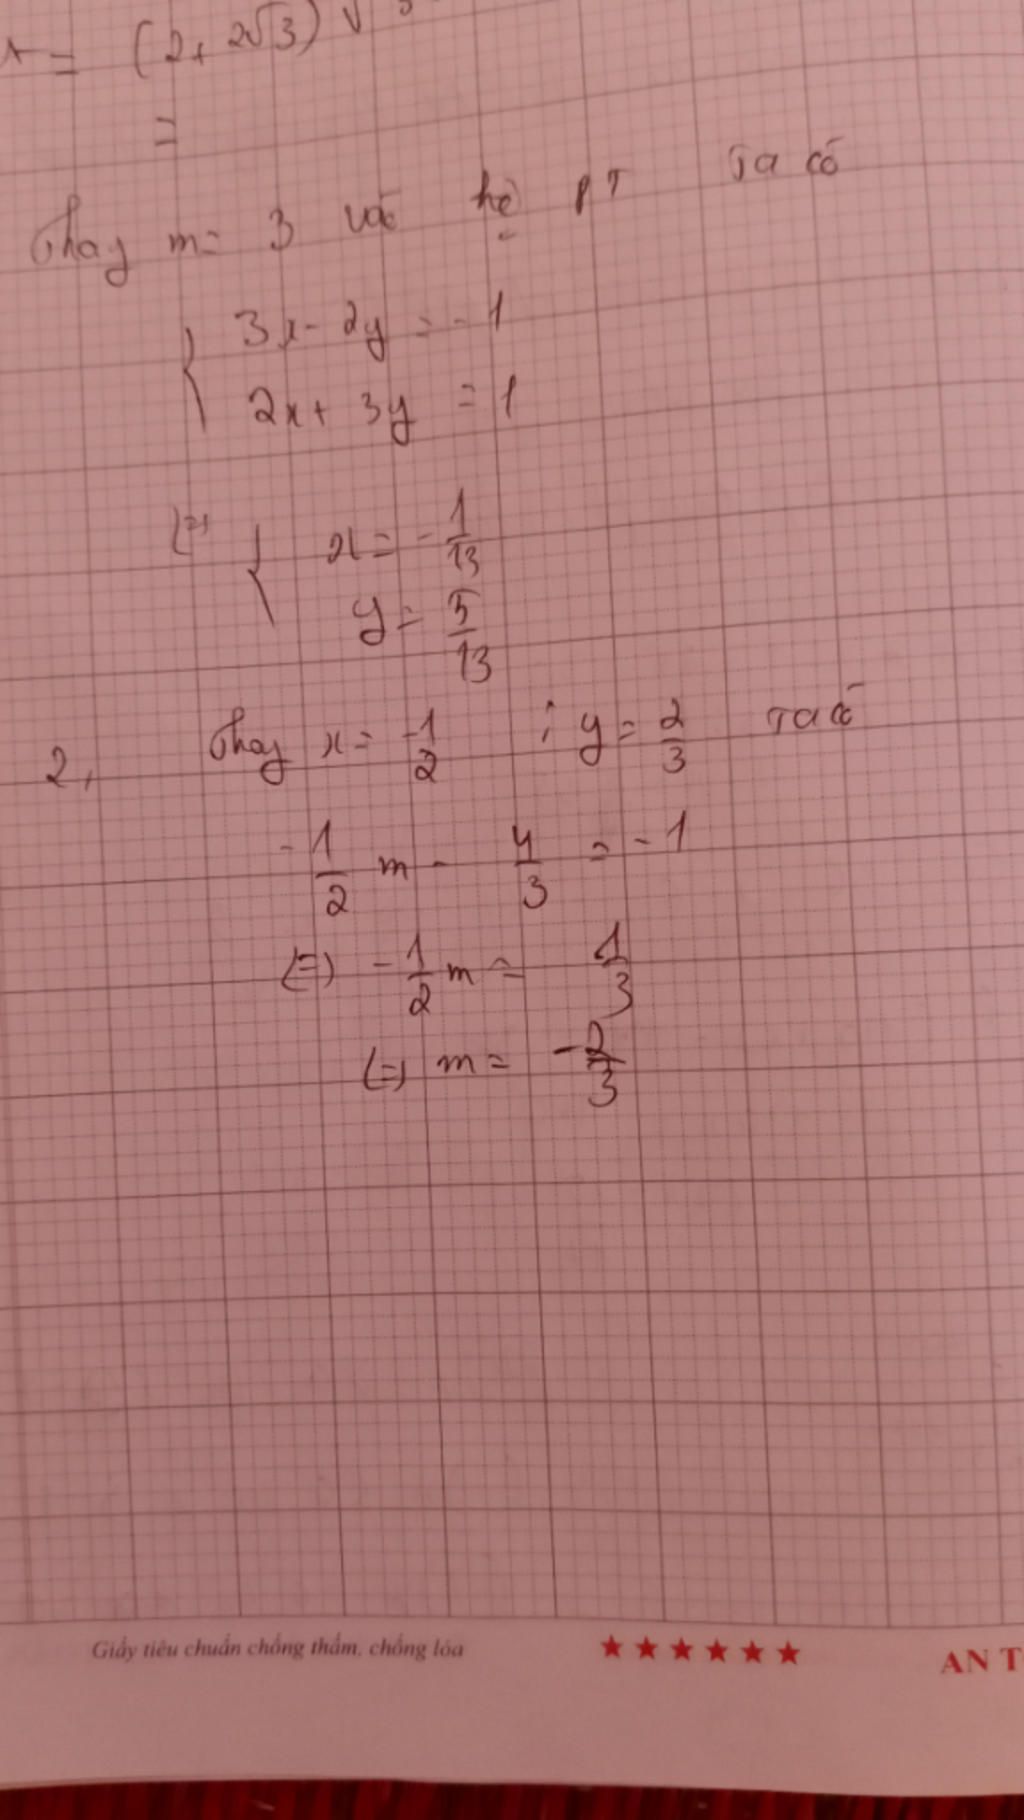 = (2+ 2√3) √
=
Thay m= 3 vào hệ PT Ta có
3x- 2y = -1
2x+ 3y = 1
(=) x= -1/13
y= 5/13
2, Thay x= -1/2 ; y= 2/3 Ta có
-1/2 m - 4/3 = -1
(=) -1/2 m = 1/3
(=) m= -2/3
Giấy tiêu chuẩn chống thấm, chống lóa ★★★★★★ AN T